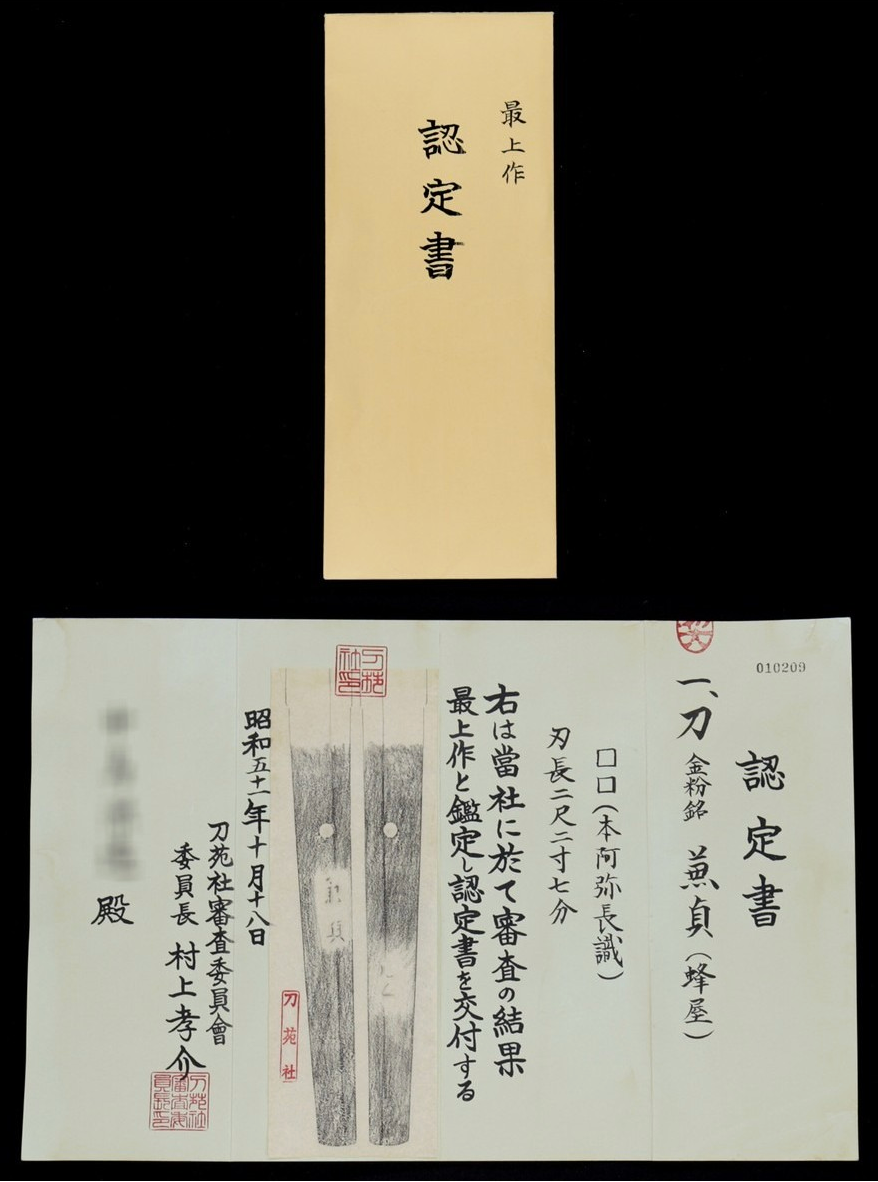 最上作
認定書
010209
認定書
一、刀 金粉銘 兼貞(蜂屋)
□□(本阿弥長識)
刃長二尺二寸七分
右は當社に於て審査の結果
最上作と鑑定し認定書を交付する
刀苑社印
兼貞
刀苑社
昭和五十一年十月十八日
刀苑社審査委員會
委員長 村上孝介
刀苑社審査委員長印
殿